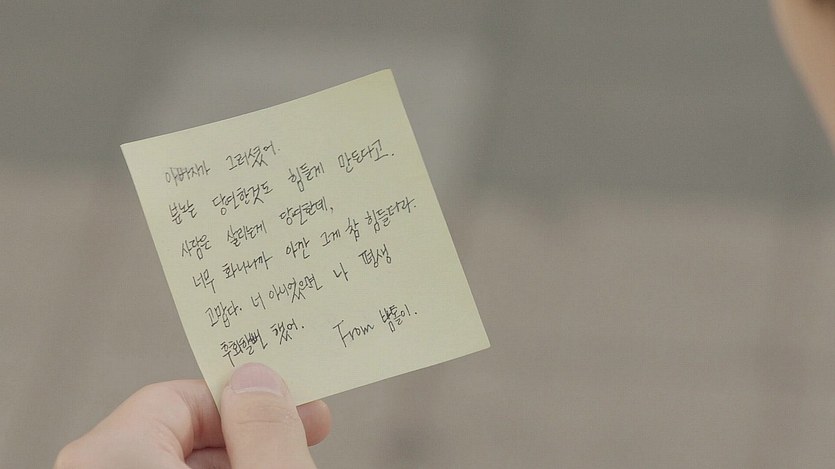 아버지가 그러셨어.
분노는 당연한것도 힘들게 만든다고.
사람은 살리는게 당연한데,
너무 화나니까 약깐 그게 참 힘들더라.
고맙다. 너 아니었으면 나 평생
후회할뻔 했어. From 밤톨이.